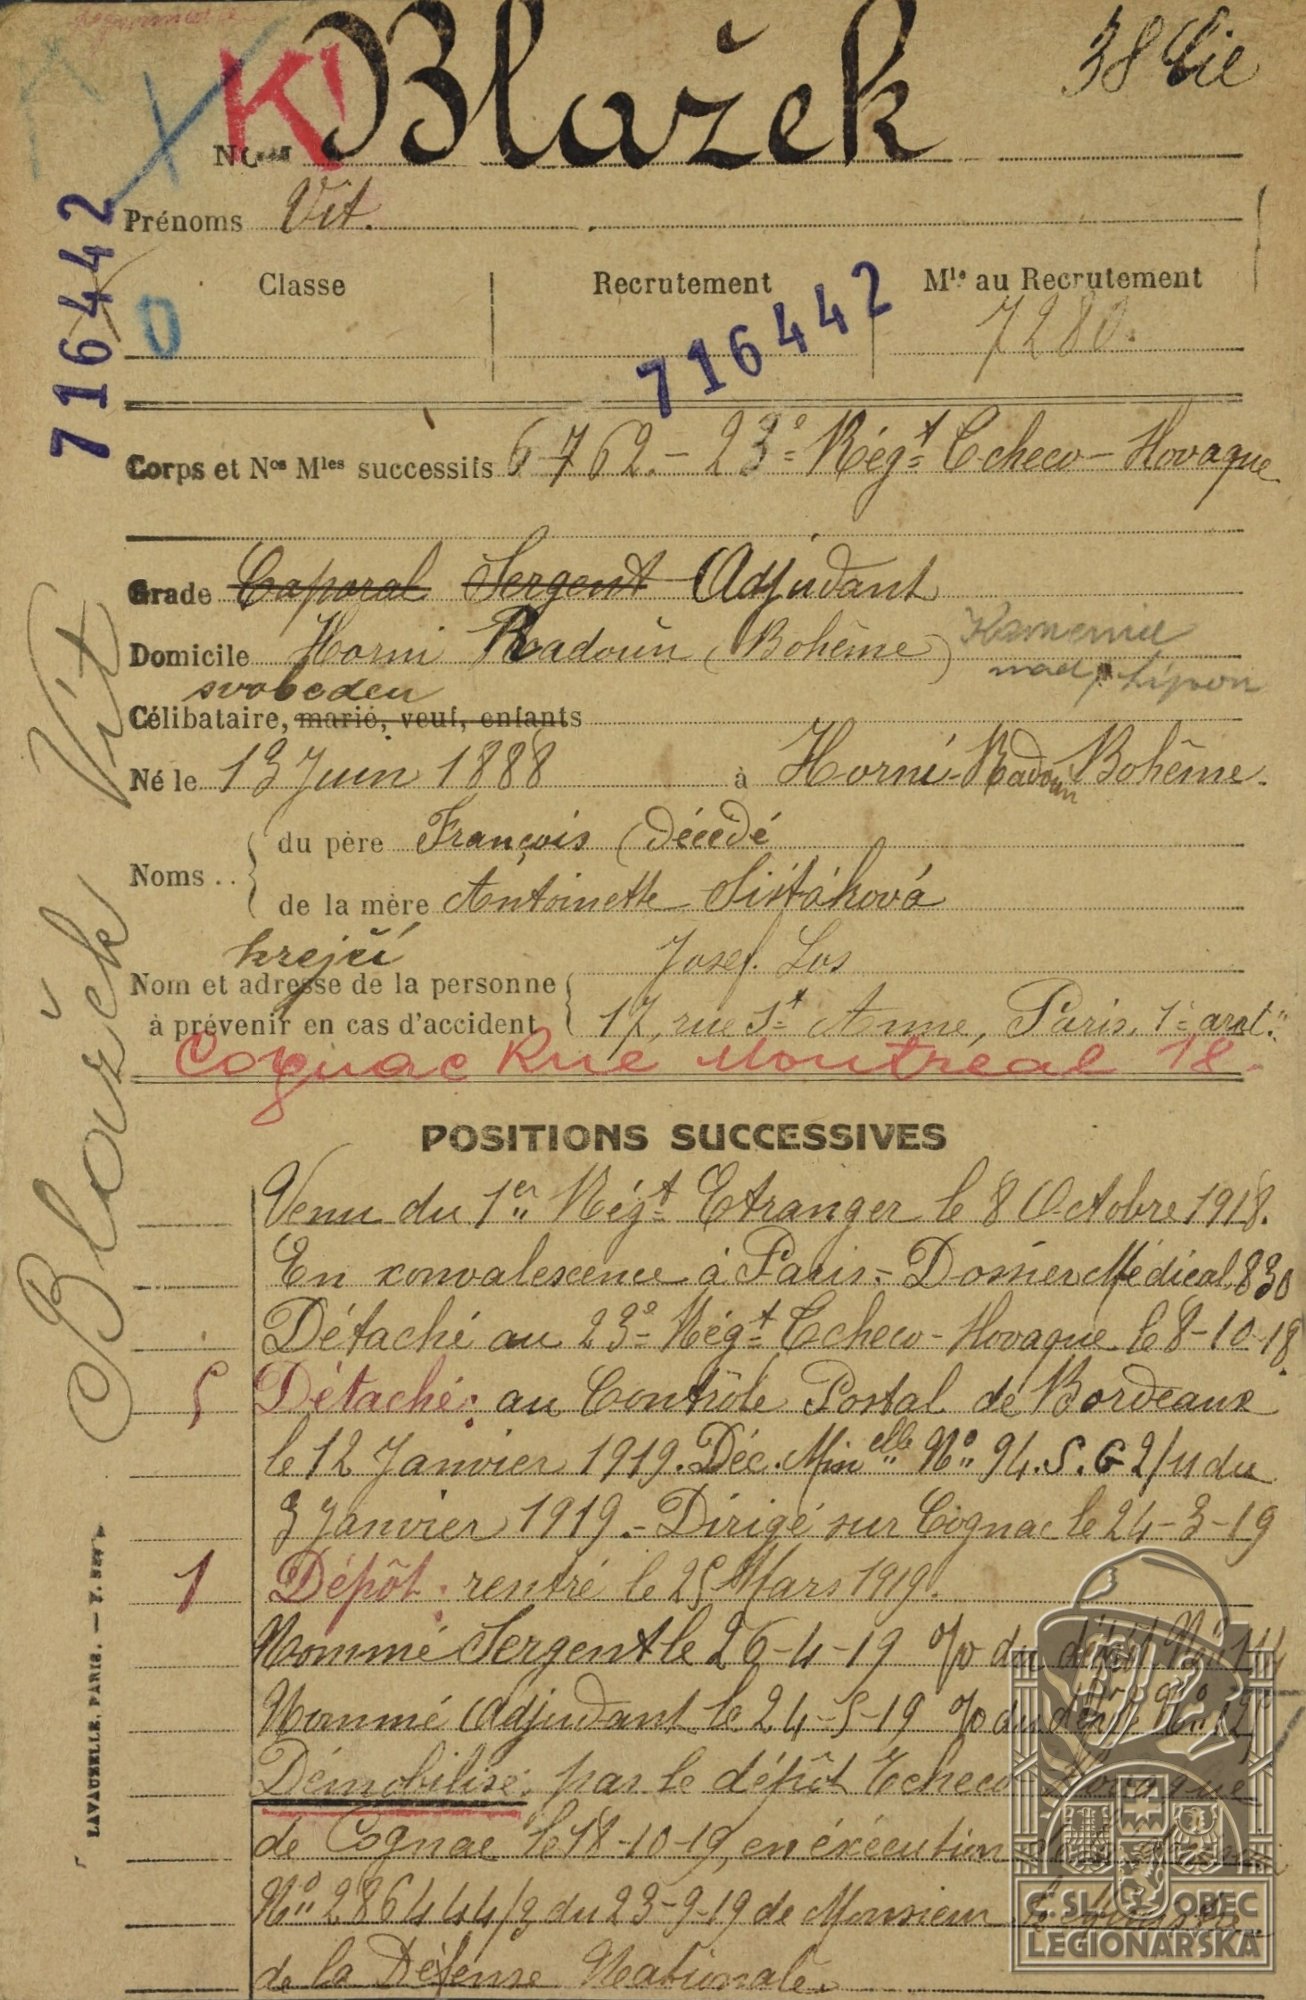 38 Cie
K
Nom Blažek
Prénoms Vít.
Classe Recrutement Mle au Recrutement
716442
716442
0
7280.
Corps et Nos Mles successifs 6762.- 23e Régt Tcheco-Slovaque
Grade Caporal Sergent Adjudant
Domicile Horni Radoun (Bohême) Kamenice nad Lipou
svoboden
Célibataire, marié, veuf, enfants
Né le 13 Juin 1888 à Horní-Radoun Bohême.
Noms..
du père François (décédé
de la mère Antoinette
krejčí
Nom et adresse de la personne
à prévenir en cas d'accident
Josef. Los
17, rue St Anne, Paris, 1er arrt.
Cognac Rue Montreal 18.
Blažek Vít
POSITIONS SUCCESSIVES
Venu du 1er Régt Etranger le 8 Octobre 1918.
En convalescence à Paris.- Dossier Médical 830
Détaché au 23e Régt Tcheco-Slovaque le 8-10-18.
5 Détaché: au Contrôle Postal de Bordeaux
le 12 Janvier 1919. Déc. Minelle No 94.S.G 2/11 du
3 Janvier 1919.- Dirigé sur Cognac le 24-3-19
1 Dépôt: rentré le 25 Mars 1919.
Nommé Sergent le 26-4-19 o/o du dépôt No 144
Nommé Adjudant le 24-5-19 o/o du No
Démobilisé: par le dépôt Tcheco-Slovaque
de Cognac le 18-10-19, en éxécution
No 286444/3 du 23-9-19 de Monsieur
de la Défense Nationale.
LAVAUZELLE, PARIS.
Č.SL. OBEC
LEGIONÁŘSKÁ